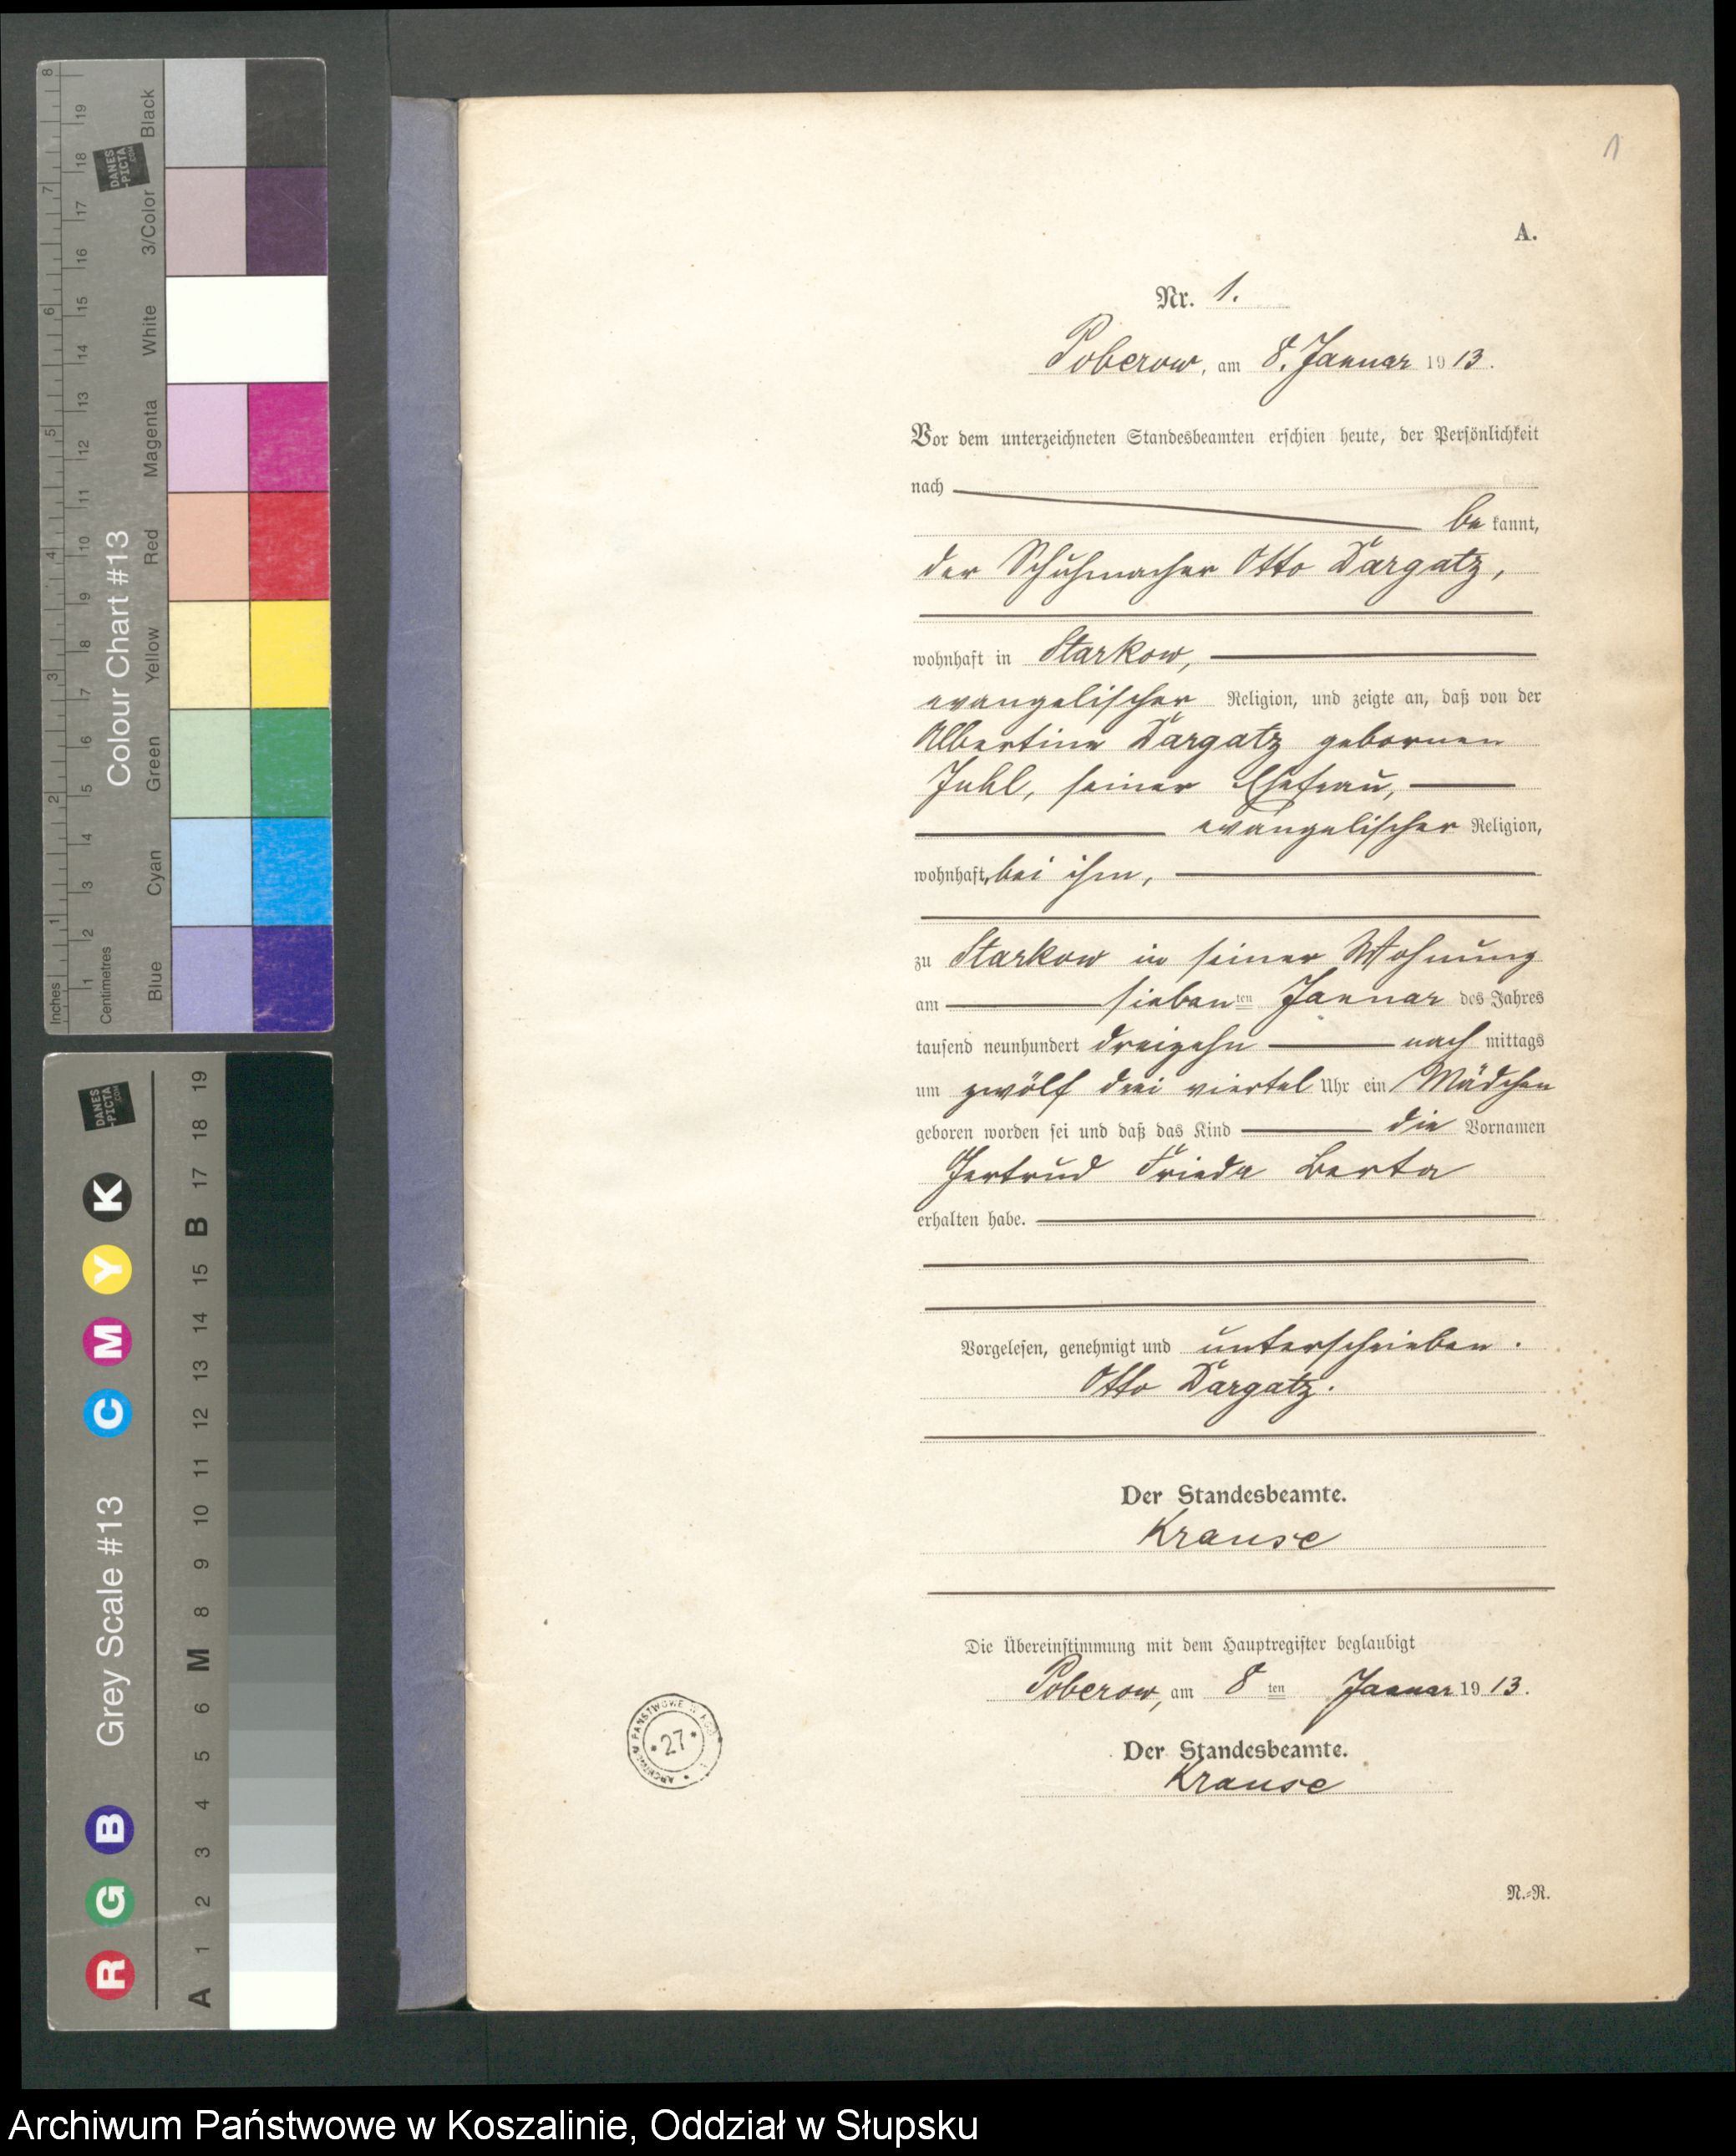 1
A.
Nr. 1.
Poberow, am 8. Januar 1913.
Vor dem unterzeichneten Standesbeamten erschien heute, der Persönlichkeit
nach
be kannt,
der Schuhmacher Otto Dargatz,
wohnhaft in Starkow,
evangelischer Religion, und zeigte an, daß von der
Albertine Dargatz gebornen
Juhl, seiner Ehefrau,
evangelischer Religion,
wohnhaft bei ihm,
zu Starkow in seiner Wohnung
am siebenten Januar des Jahres
tausend neunhundert dreizehn nach mittags
um zwölf drei viertel Uhr ein Mädchen
geboren worden sei und daß das Kind die Vornamen
Gertrud Frieda Berta
erhalten habe.
Vorgelesen, genehmigt und unterschrieben.
Otto Dargatz.
Der Standesbeamte.
Krause
Die Übereinstimmung mit dem Hauptregister beglaubigt
Poberow, am 8ten Januar 1913.
Der Standesbeamte.
Krause
N.-R.
ARCHIWUM PAŃSTWOWE W
* 27 *
8 7 6 5 4 3 2 1 Inches
19 18 17 16 15 14 13 12 11 10 9 8 7 6 5 4 3 2 1 Centimetres
DANES
-PICTA
.COM
Colour Chart #13
Blue Cyan Green Yellow Red Magenta White 3/Color Black
DANES
-PICTA
.COM
Grey Scale #13
R G B C M Y K
A 1 2 3 4 5 6 M 8 9 10 11 12 13 14 15 B 17 18 19
Archiwum Państwowe w Koszalinie, Oddział w Słupsku